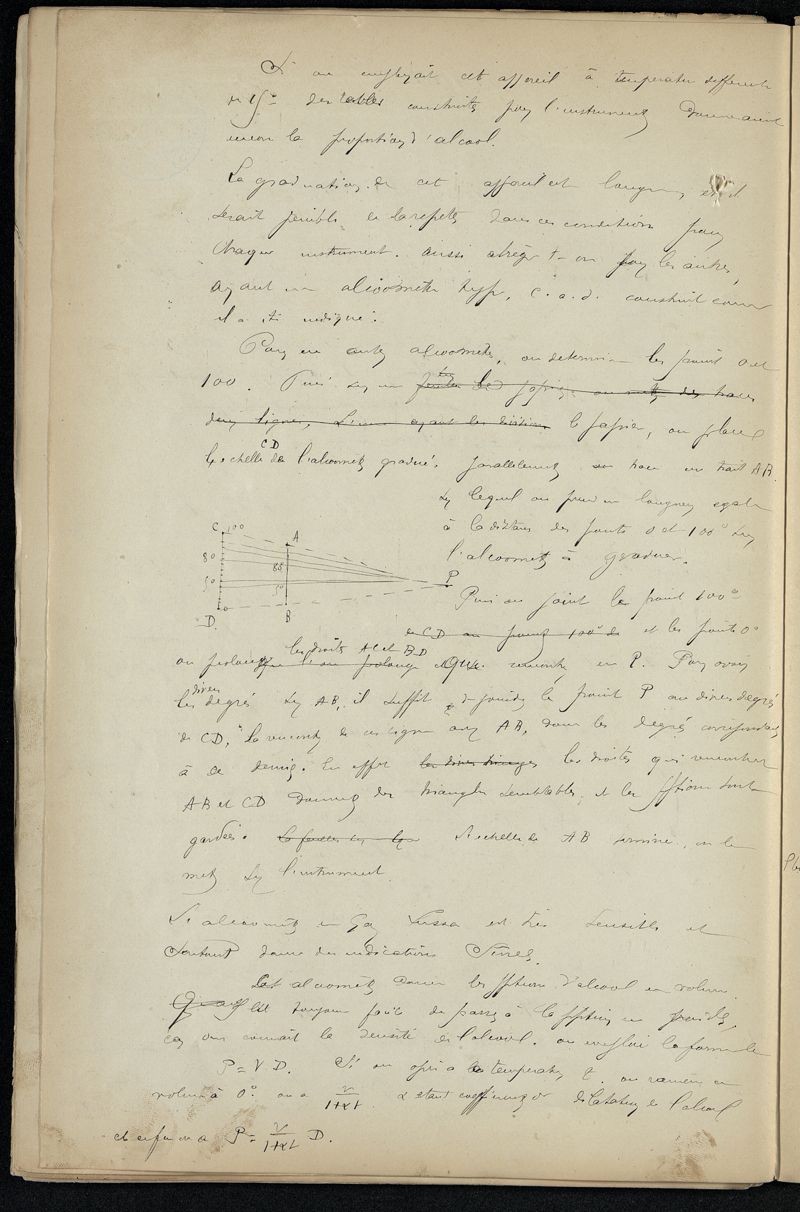 Si on employait cet appareil à température différente
de 15° des tables construites pour l'instrument donneraient
encore la proportion d'alcool.
La graduation de cet appareil est longue, et il
serait pénible de la répéter dans ces conditions pour
chaque instrument. aussi abrège-t-on pour les autres,
ayant un alcoomètre type, c.a.d. construit comme
il a été indiqué.
Pour un autre alcoomètre, on détermine les points 0 et
100. Puis sur un papier on met des traces
deux lignes, l'une ayant les divisions le papier, on place
CD
l'échelle de l'alcoomètre gradué. parallèlement on trace un trait AB.
sur lequel on prend une longueur égale
à la distance des points 0 et 100° sur
l'alcoomètre à graduer.
C 100
A
80
85
50
50
P
D 0
B
Puis on joint les points 100°
de CD au point 100° de et les points 0°
les droites AC et BD
on prolonge que l'on prolonge se rencontrent en P. Pour avoir
divers
les degrés sur AB, il suffit de joindre le point P aux divers degrés
de CD, la rencontre de ces lignes avec AB, donne les degrés correspondants
à ce dernier. En effet les droites qui rencontrent
AB et CD donnent des triangles semblables, et les pptions sont
gardées. L'échelle de AB terminée, on la
met sur l'instrument.
L'alcoomètre de Gay Lussac est très sensible et
pourtant donne des indications
Cet alcoomètre donne les pptions d'alcool en volume.
Il est toujours facile de passer à la pption en poids,
car on connaît la densité de l'alcool. on emploie la formule
P = V D. Si on opère à la température t. on ramène ce
volume à 0°. on a V/1+αt. α étant coefficient de dilatation de l'alcool
et enfin on a P = V/1+αt D.